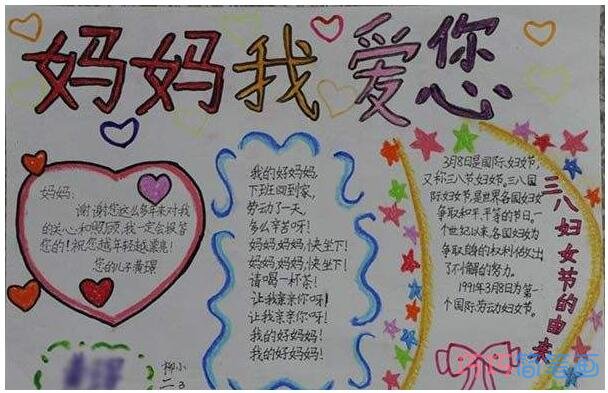 妈妈我爱您
妈妈:
谢谢您这么多年来对我
的关心和照顾,我一定会报答
您的!祝您越年轻越漂亮!
您的儿子黄璟
我的好妈妈,
下班回到家,
劳动了一天,
多么辛苦呀!
妈妈,妈妈,快坐下!
妈妈,妈妈,快坐下!
请喝一杯茶!
让我亲亲你呀!
让我亲亲你呀!
我的好妈妈!
我的好妈妈!
3月8日是国际妇女节,
又称三八节妇女节。三八国
际妇女节,是世界各国妇女
争取和平、平等的节日,一
个世纪以来,各国妇女为
争取她的权利做出
了不懈的努力。
1911年3月8日为第一
个国际劳动妇女节。
三八妇女节的由来
柳小
二3